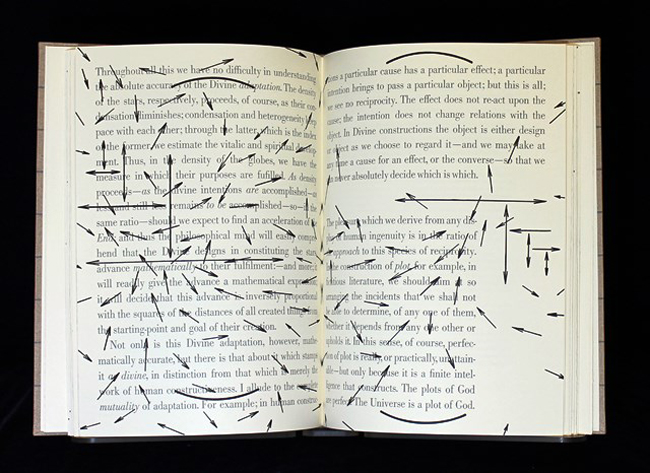 Throughout all this we have no difficulty in understanding
the absolute accuracy of the Divine adaptation. The density
of the stars, respectively, proceeds, of course, as their con-
densation diminishes; condensation and heterogeneity keep
pace with each other; through the latter, which is the index
of the former, we estimate the vitalic and spiritual develop-
ment. Thus, in the density of the globes, we have the
measure in which their purposes are fufilled. As density
proceeds—as the divine intentions are accomplished—as
less and still less remains to be accomplished—so—in the
same ratio—should we expect to find an acceleration of the
End: and thus the philosophical mind will easily compre-
hend that the Divine designs in constituting the stars
advance mathematically to their fulfilment:—and more; it
will readily give the advance a mathematical expression;
it will decide that this advance is inversely proportional
with the squares of the distances of all created things from
the starting-point and goal of their creation.
Not only is this Divine adaptation, however, mathe-
matically accurate, but there is that about it which stamps
it as divine, in distinction from that which is merely the
work of human constructiveness. I allude to the complete
mutuality of adaptation. For example; in human construc-
tions a particular cause has a particular effect; a particular
intention brings to pass a particular object; but this is all;
we see no reciprocity. The effect does not re-act upon the
cause; the intention does not change relations with the
object. In Divine constructions the object is either design
or object as we choose to regard it—and we may take at
any time a cause for an effect, or the converse—so that we
can never absolutely decide which is which.
The pleasure which we derive from any dis-
play of human ingenuity is in the ratio of
the approach to this species of reciprocity.
In the construction of plot, for example, in
fictitious literature, we should aim at so
arranging the incidents that we shall not
be able to determine, of any one of them,
whether it depends from any one other or
upholds it. In this sense, of course, perfec-
tion of plot is really, or practically, unattain-
able—but only because it is a finite intel-
ligence that constructs. The plots of God
are perfect. The Universe is a plot of God.